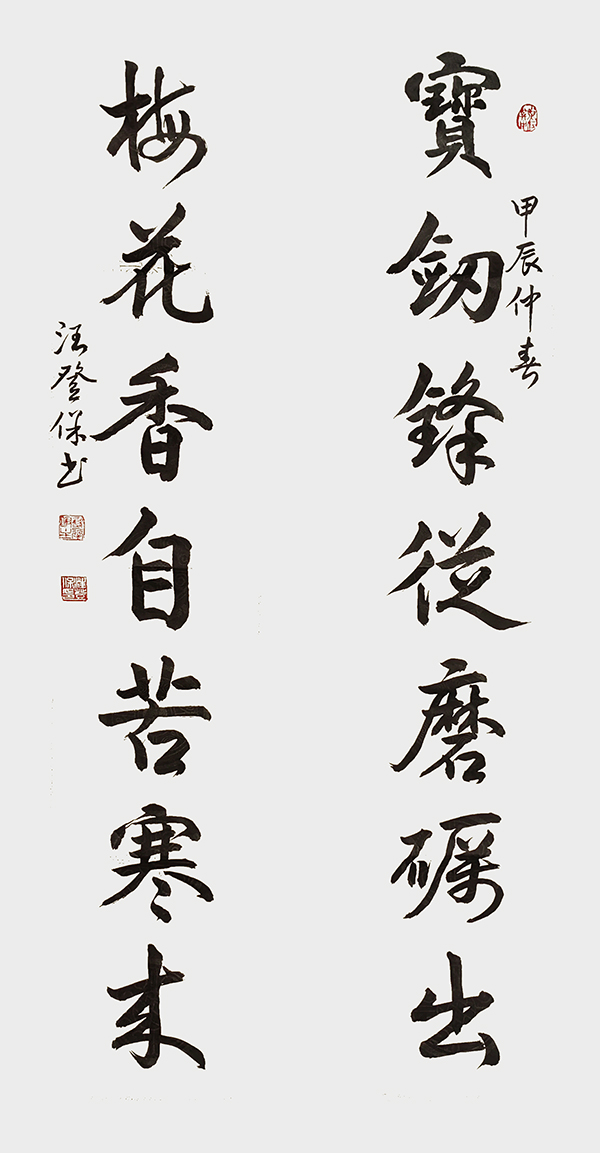 甲辰仲春
寶劒鋒從磨礪出
梅花香自苦寒來
汪登保书